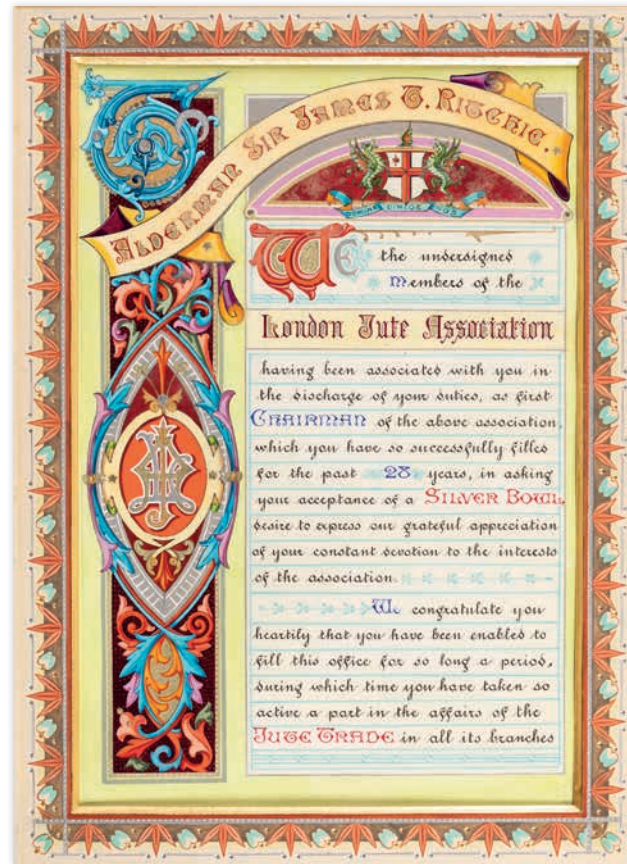 Alderman Sir James T. Ritchie.
DOMINE DIRIGE NOS
We the undersigned
Members of the
London Jute Association
having been associated with you in
the discharge of your duties, as first
CHAIRMAN of the above association,
which you have so successfully filled
for the past 28 years, in asking
your acceptance of a SILVER BOWL,
desire to express our grateful appreciation
of your constant devotion to the interests
of the association.
We congratulate you
heartily that you have been enabled to
fill this office for so long a period,
during which time you have taken so
active a part in the affairs of the
JUTE TRADE in all its branches